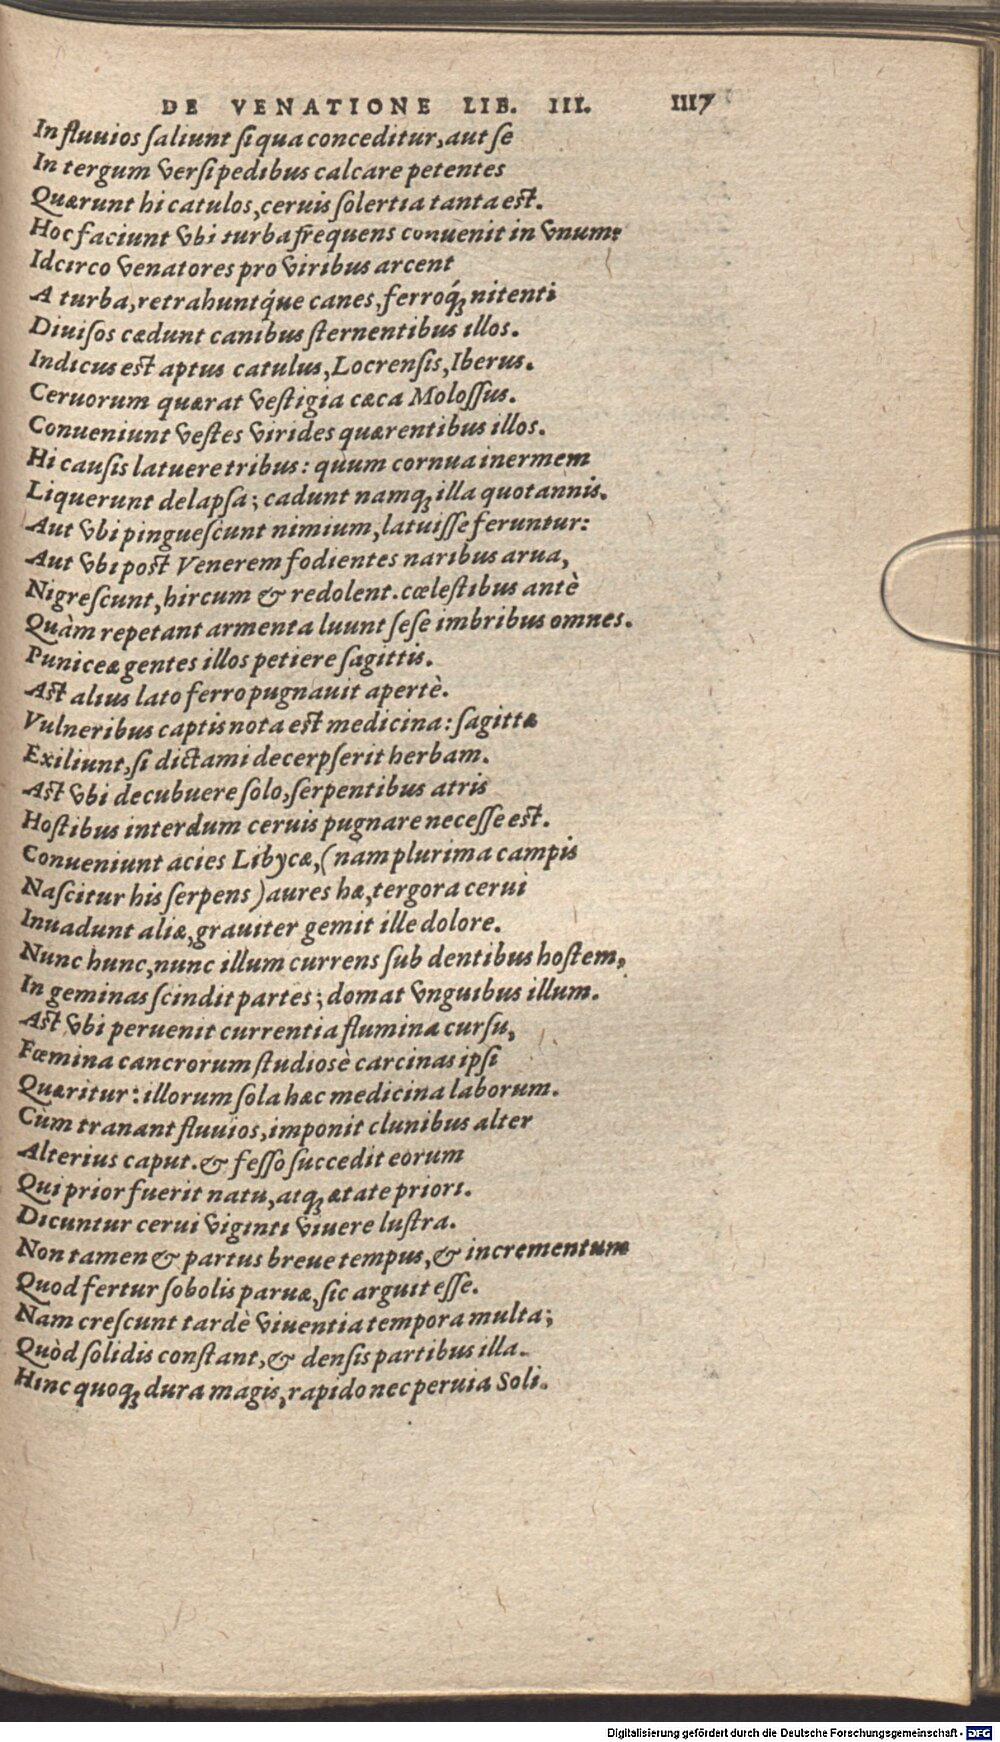 DE VENATIONE LIB. III. 1117
In fluuios ſaliunt ſi qua conceditur, aut ſe
In tergum verſi pedibus calcare petentes
Quærunt hi catulos, ceruis ſolertia tanta est.
Hoc faciunt vbi turba frequens conuenit in vnum:
Idcirco venatores pro viribus arcent
A turba, retrahuntq́ue canes, ferroq́ꝫ nitenti
Diuiſos cædunt canibus ſternentibus illos.
Indicus est aptus catulus, Locrenſis, Iberus.
Ceruorum quærat veſtigia cæca Moloſſus.
Conueniunt veſtes virides quærentibus illos.
Hi cauſis latuere tribus: quum cornua inermem
Liquerunt delapſa; cadunt namqꝫ illa quotannis.
Aut vbi pingueſcunt nimium, latuiſſe feruntur:
Aut vbi post Venerem fodientes naribus arua,
Nigreſcunt, hircum & redolent. cœleſtibus antè
Quàm repetant armenta luunt ſeſe imbribus omnes.
Puniceæ gentes illos petiere ſagittis.
Ast alius lato ferro pugnauit apertè.
Vulneribus captis nota est medicina: ſagittæ
Exiliunt, ſi dictami decerpſerit herbam.
Ast vbi decubuere ſolo, ſerpentibus atris
Hoſtibus interdum ceruis pugnare neceſſe est.
Conueniunt acies Libycæ, (nam plurima campis
Naſcitur his ſerpens) aures hæ, tergora cerui
Inuadunt aliæ, grauiter gemit ille dolore.
Nunc hunc, nunc illum currens ſub dentibus hoſtem,
In geminas ſcindit partes; domat vnguibus illum.
Ast vbi peruenit currentia flumina curſu,
Fœmina cancrorum ſtudiosè carcinas ipſi
Quæritur: illorum ſola hæc medicina laborum.
Cùm tranant fluuios, imponit clunibus alter
Alterius caput. & feſſo ſuccedit eorum
Qui prior fuerit natu, atqꝫ ætate priori.
Dicuntur cerui viginti viuere luſtra.
Non tamen & partus breue tempus, & incrementum
Quod fertur ſobolis paruæ, ſic arguit eſſe.
Nam creſcunt tardè viuentia tempora multa;
Quòd ſolidis conſtant, & denſis partibus illa.
Hinc quoqꝫ dura magis, rapido nec peruia Soli.
Digitalisierung gefördert durch die Deutsche Forschungsgemeinschaft - DFG